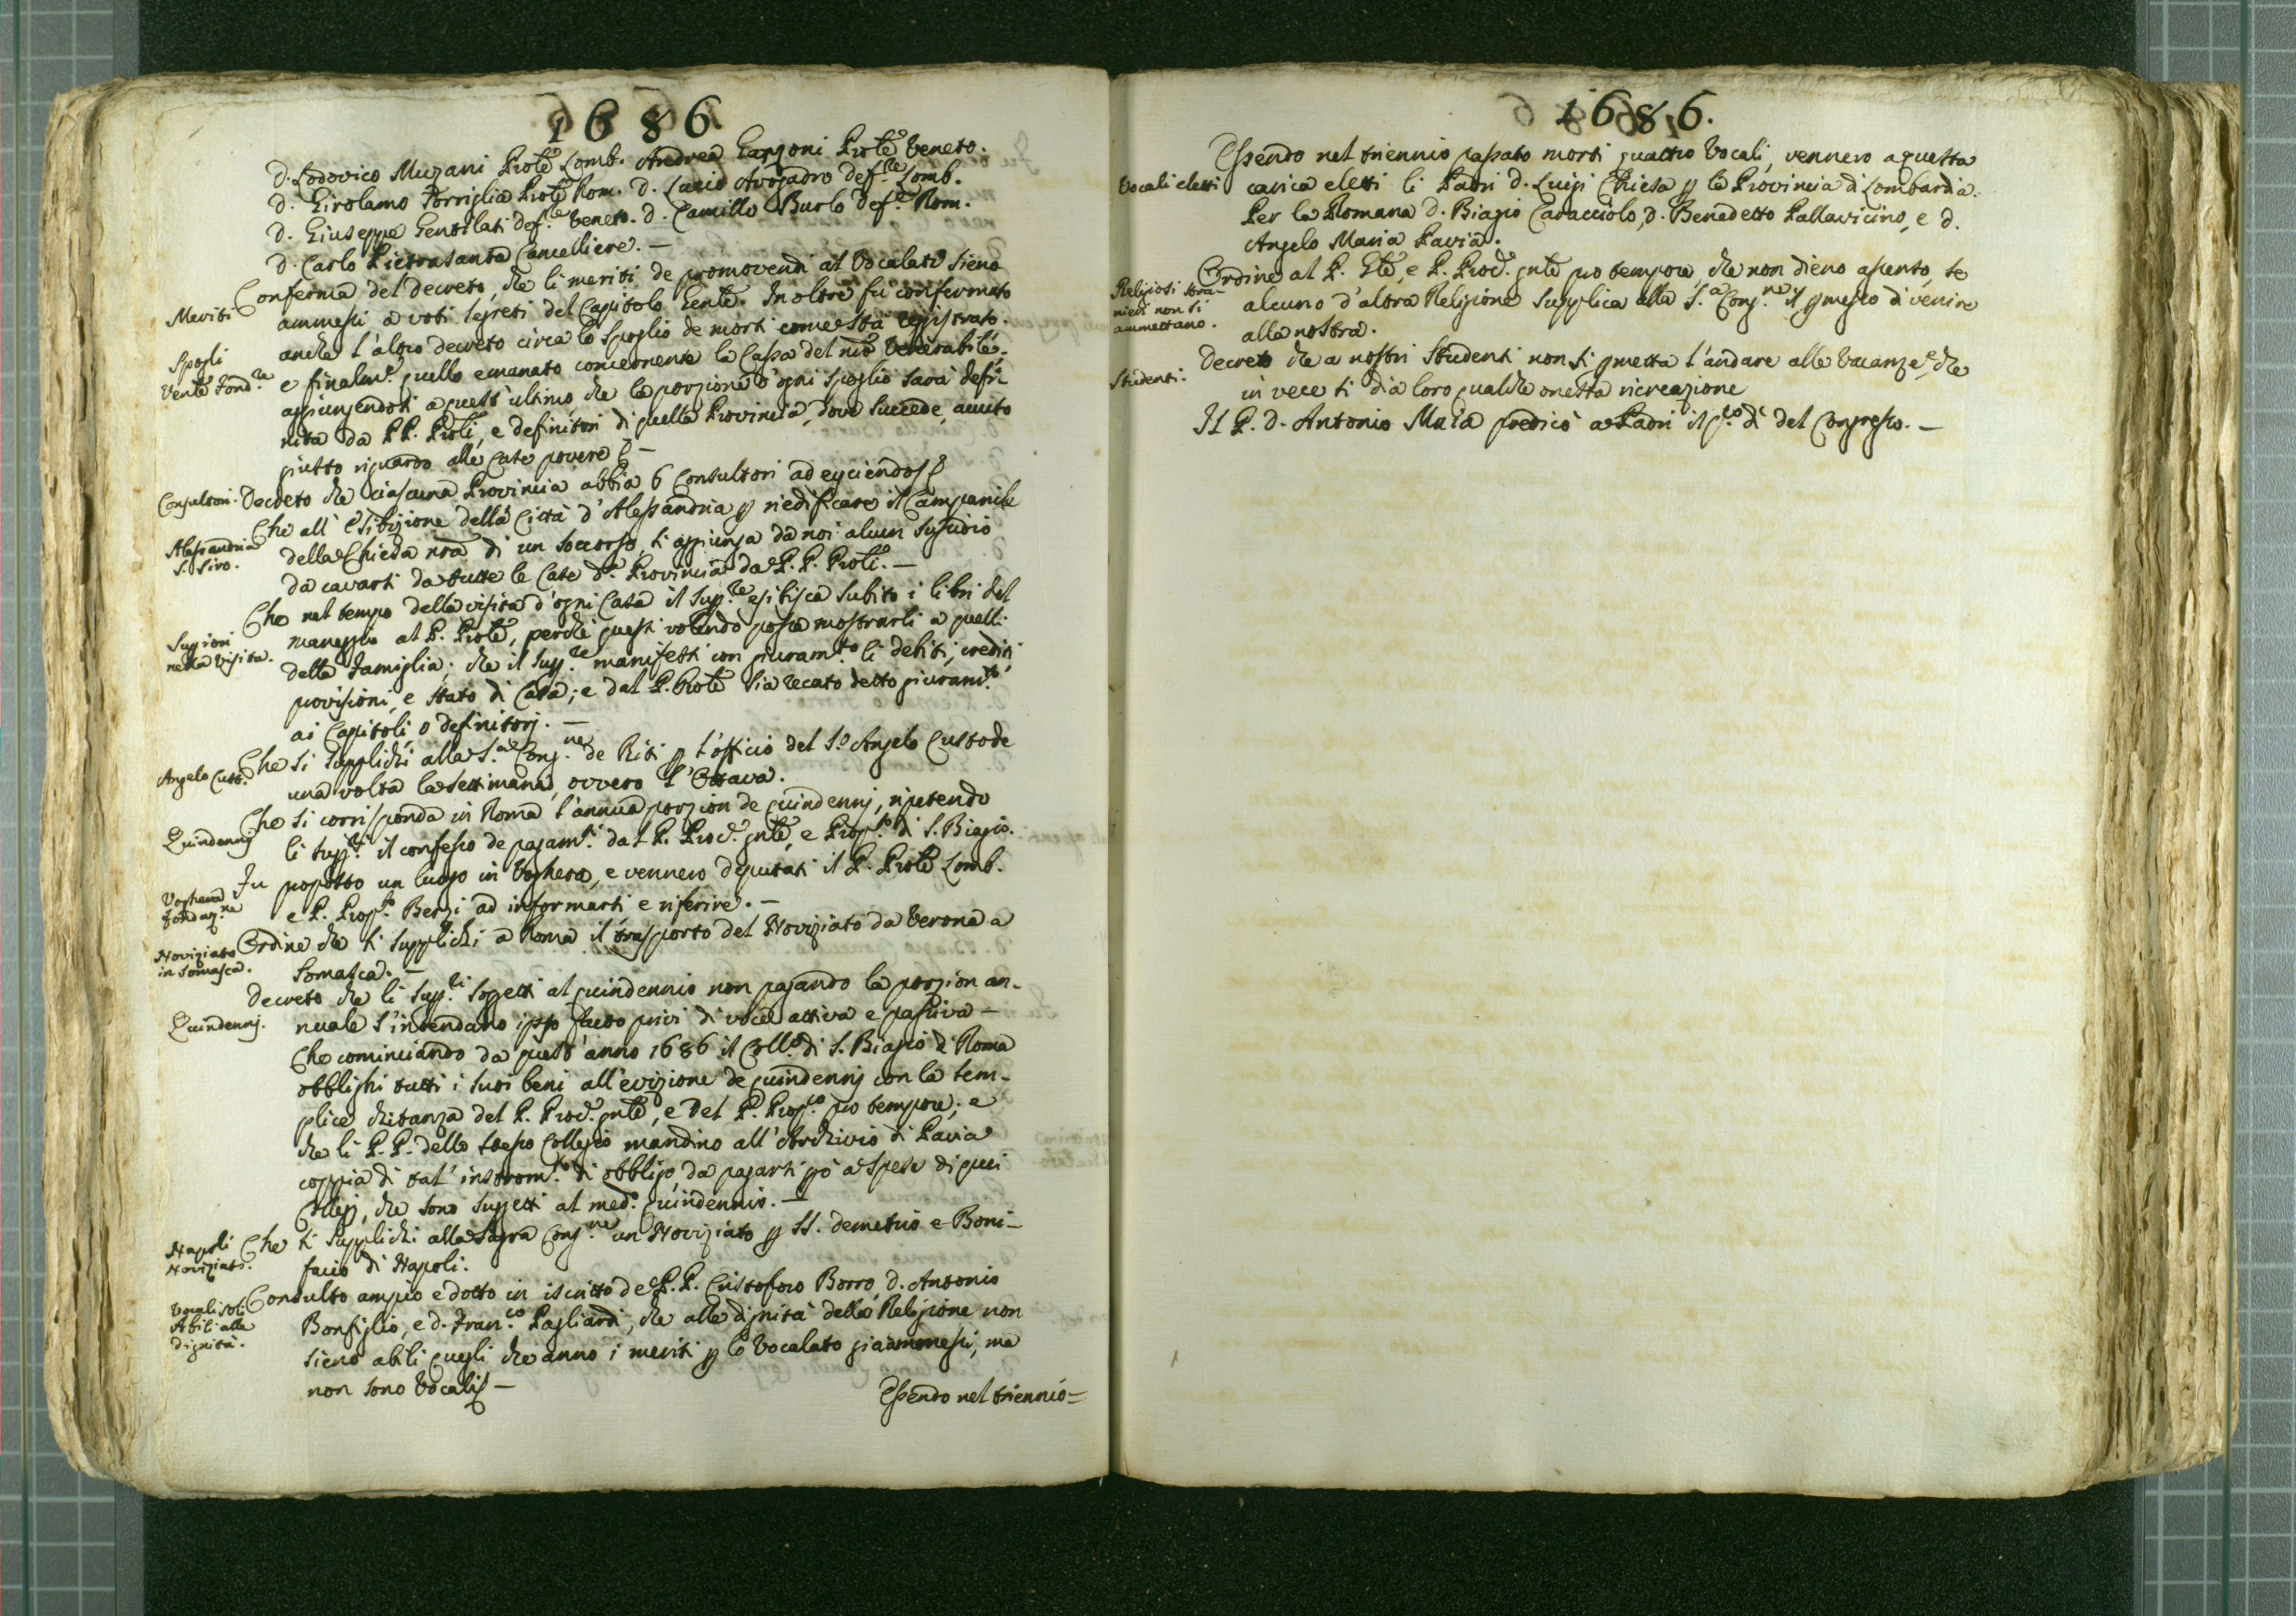 1686
D. Lodovico Muzani Prole Lomb. Andrea Garzoni Prole Veneto.
D. Girolamo Torriglia Prole Rom. D. Lucio Avogadro def.re Lomb.
D. Giuseppe Gentilati def.re Veneto. D. Camillo Burlo def.re Rom.
D. Carlo Pietrasanta Cancelliere. —
Meriti
Conferma del decreto, che li meriti de promovendi al Vocalato sieno
ammessi a voti segreti del Capitolo Gente. Inoltre fu confermato
Spogli
anche l'altro decreto circa lo spoglio de morti come sta registrato.
e finalm.e quello emanato concernente la Cassa del nro Venerabile.
aggiungendosi a quest'ultimo che la porzione d'ogni spoglio sarà defi-
nita da PP. Proli, e definitori di quella Provincia, dove succede, avuto
giusto riguardo alle Case povere
Consultori.
Decreto che ciascuna Provincia abbia 6 Consultori ad eyciendos
Alessandria
S. Siro.
Che all'esibizione della Città d'Alessandria p riedificare il Campanile
della Chiesa nra di un soccorso, si aggiunga da noi alcun sussidio
da cavarsi da tutte le Case d.a Provincia da P. P. Proli. —
Superiori
nella Visita.
Che nel tempo della visita d'ogni Casa il Sup.re esibisca subito i libri del
maneggio al P. Prole, perchè questi volendo possa mostrarli a quelli
della famiglia; che il Sup.re manifesti con giuram.to li debiti, crediti
provisioni, e stato di Casa; e dal P. Prole sia recato detto giuram.to
ai Capitoli o definitorj. —
Angelo Cust.e
Che si supplichi alla S.a Cong.ne de Riti p l'officio del S.o Angelo Custode
una volta la settimana, ovvero l'Ottava.
Quindennj
Che si corrisponda in Roma l'annua porzion de quindennj, ripetendo
li Sup.ri il confesso de pagam.ti dal P. Proc.e gnle, e Prop.to di S. Biagio.
Voghera
fondaz.ne
Fu proposto un luogo in Voghera, e vennero deputati il P. Prole Lomb.
e P. Prop.to Berzi ad informarsi e riferire. —
Noviziato
in Somasca.
Ordine che si supplichi a Roma il trasporto del Noviziato da Verona a
Somasca. —
Quindennj.
Decreto che li Sup.ri soggetti al quindennio non pagando la porzion an-
nuale s'intendano ipso facto privi di voce attiva e passiva —
Che cominciando da quest'anno 1686 il Coll.o di S. Biagio di Roma
obblighi tutti i suoi beni all'evizione de quindennj con la sem-
plice chitanza del P. Proc.e gnle, e del P. Prop.to pro tempore; e
che li P. P. dello stesso Collegio mandino all'Archivio di Pavia
coppia di tal' instrom.to di obbligo, da pagarsi pò a spese di quei
Collegj, che sono suggetti al med.o quindennio. —
Napoli
Noviziato.
Che si supplichi alla Sagra Cong.ne un Noviziato p SS. Demetrio e Boni-
facio di Napoli.
Vocali soli
Abili alle
dignità.
Consulto ampio e dotto in iscritto de P. P. Cristoforo Borro, D. Antonio
Bonfiglio, e D. Fran.co Pagliardi, che alle dignità della Religione non
sieno abili quegli che anno i meriti p lo Vocalato già ammessi, ma
non sono Vocali —
Essendo nel triennio —
1686.
Vocali eletti
Essendo nel triennio passato morti quattro Vocali, vennero a questa
carica eletti li Padri D. Luigi Chiesa p la Provincia di Lombardia.
Per la Romana D. Biagio Caracciolo, D. Benedetto Pallavicino, e D.
Angelo Maria Pavia.
Religiosi stra-
nieri non si
ammettano.
Ordine al P. Gle, e P. Proc.e gnle pro tempore, che non dieno assenso, se
alcuno d'altra Religione supplica alla S.a Cong.ne il pmesso di venire
alla nostra.
Studenti.
Decreto che a nostri Studenti non si pmetta l'andare alle Vacanze, che
in vece si dia loro qualche onesta ricreazione
Il P. D. Antonio Maria predicò a Padri il p.o dì del Congresso. —